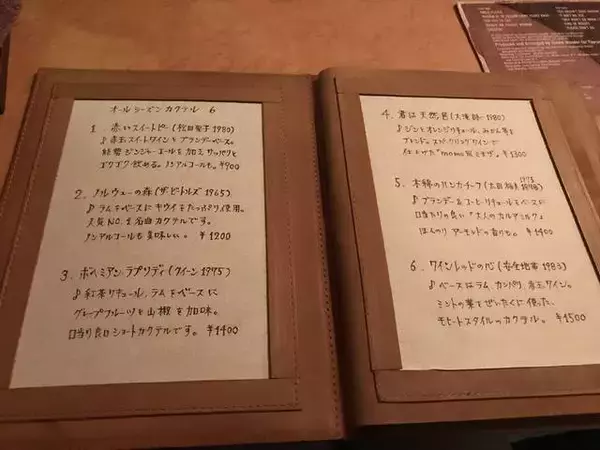 オールシーズンカクテル 6
1. 赤いスイートピー (松田聖子 1980)
♪ 赤玉スイートワインとブランデーベース。
ジンジャーエールを加え、サッパリと
ゴクゴク飲める。ノンアルコールも。¥900
2. ノルウェーの森 (ザ・ビートルズ 1965)
♪ ラムをベースにキウイをたっぷり使用。
人気NO.1 名曲カクテルです。
ノンアルコールも美味しい。 ¥1200
3. ボヘミアン・ラプソディ (クイーン 1975)
♪ 紅茶リキュール、ラムをベースに
グレープフルーツと山椒を加味。
口当り良いショートカクテルです。 ¥1400
4. 君は天然色 (大滝詠一 1980)
♪ ジンとオレンジリキュール、みかん等を
ブレンド。スパークリングワインで
仕上げた"momo風ミモザ。 ¥1300
5. 木綿のハンカチーフ (太田裕美 1975)
♪ ブランデー&コーヒーリキュールをベースに
口当たりの良い「大人のカルアミルク」
ほんのりアーモンドの香りも。 ¥1400
6. ワインレッドの心 (安全地帯 1983)
♪ ベースはラム、カンパリ、赤玉ワイン。
ミントの葉をぜいたくに使った、
モヒートスタイルのカクテル。 ¥1500